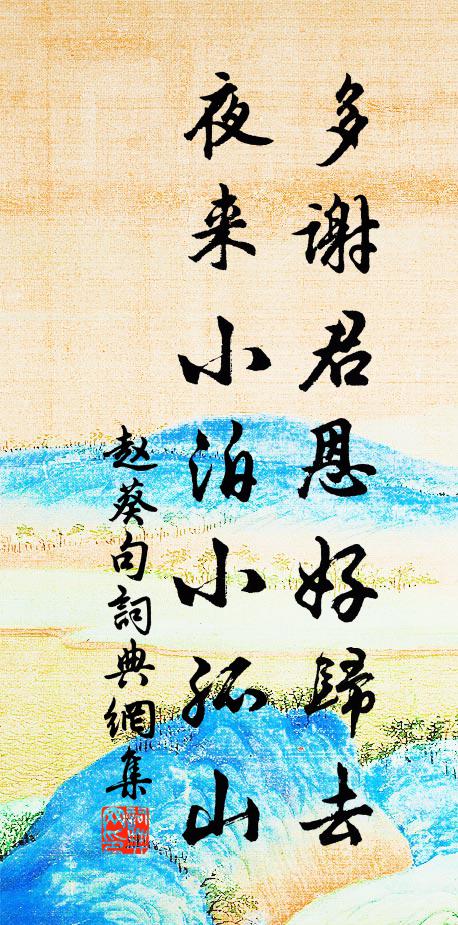 多谢君恩好歸去
夜来小泊小孤山
赵葵句詞典網集